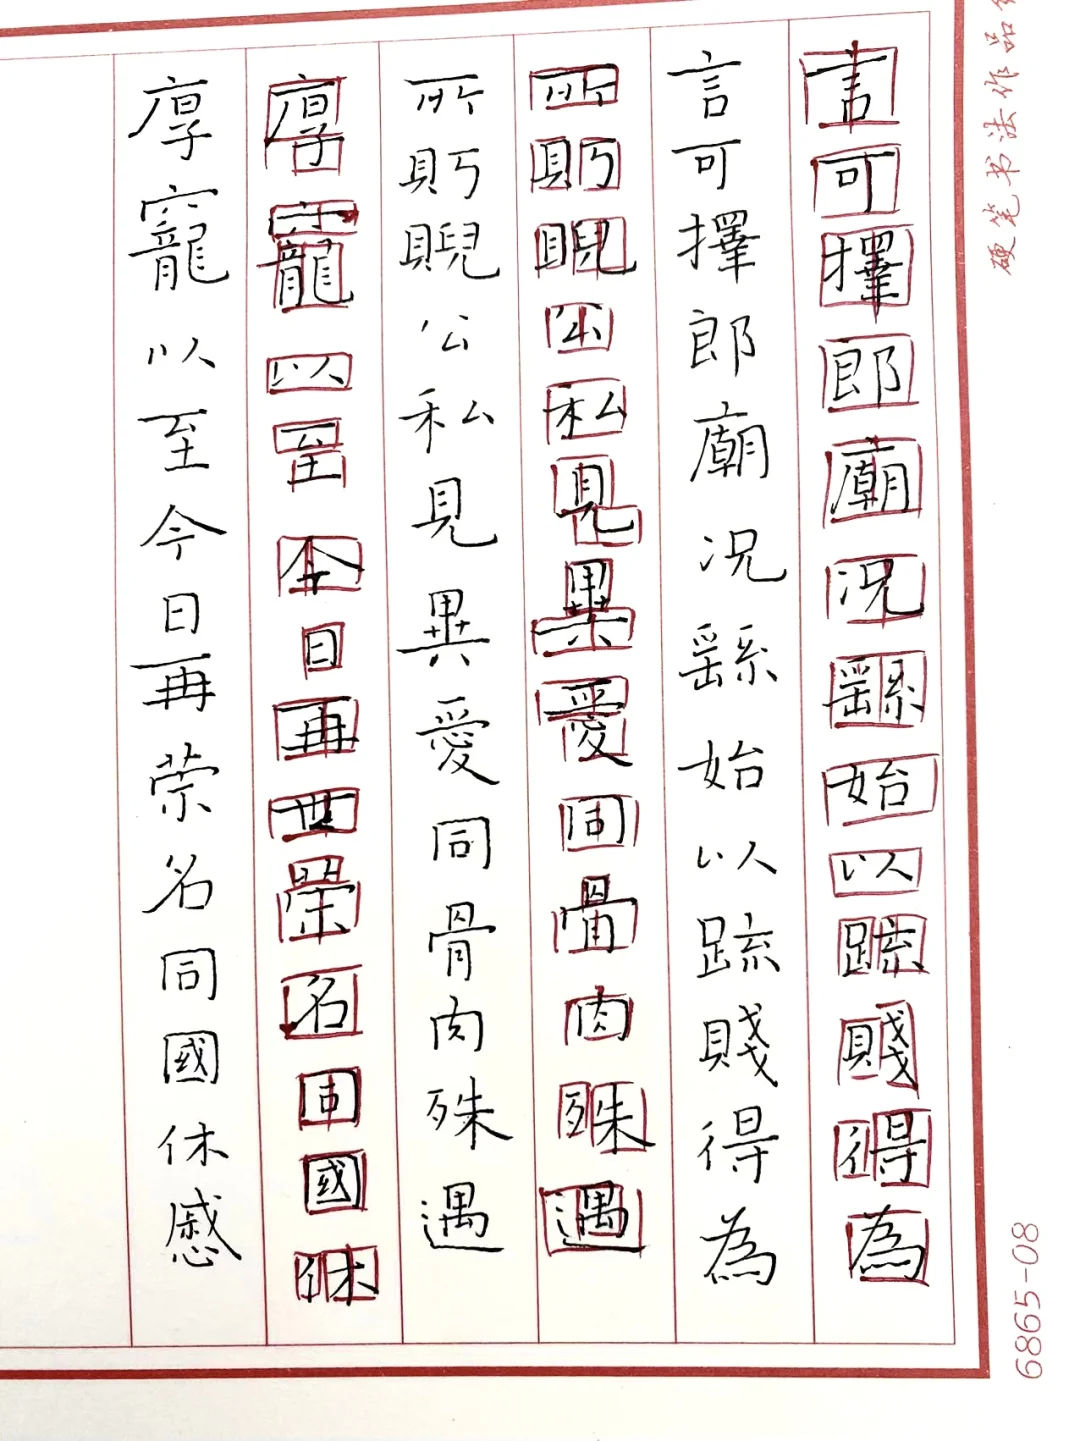 硬笔书法作品
言可擇郎廟况繇始以疏賤得為
言可擇郎廟况繇始以疏賤得為
所盱睨公私見異愛同骨肉殊遇
所盱睨公私見異愛同骨肉殊遇
厚寵以至今日再世榮名同國休
厚寵以至今日再荣名同國休慼
6865-08